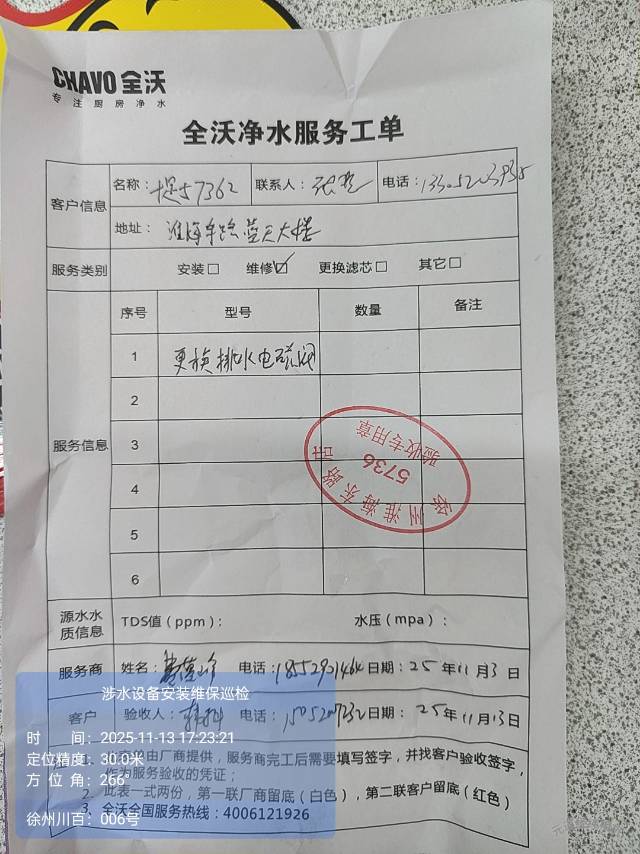 CHAVO 全沃
专注厨房净水
全沃净水服务工单
客户信息
名称： 联系人： 电话：
地址： 淮海东路蓝天大楼
服务类别 安装□ 维修☑ 更换滤芯□ 其它□
服务信息
序号 型号 数量 备注
1 更换排水电磁阀
2
3
4
5
6
徐州淮海东路店
5736
验收专用章
源水水质信息 TDS值（ppm）： 水压（mpa）：
服务商 姓名： 电话： 日期：25年11月3日
客户 验收人： 电话： 日期：25年11月13日
由厂商提供，服务商完工后需要填写签字，并找客户验收签字，
作为服务验收的凭证；
2. 此表一式两份，第一联厂商留底（白色），第二联客户留底（红色）
3. 全沃全国服务热线：4006121926
涉水设备安装维保巡检
时 间：2025-11-13 17:23:21
定位精度：30.0米
方 位 角：266°
徐州川百：006号